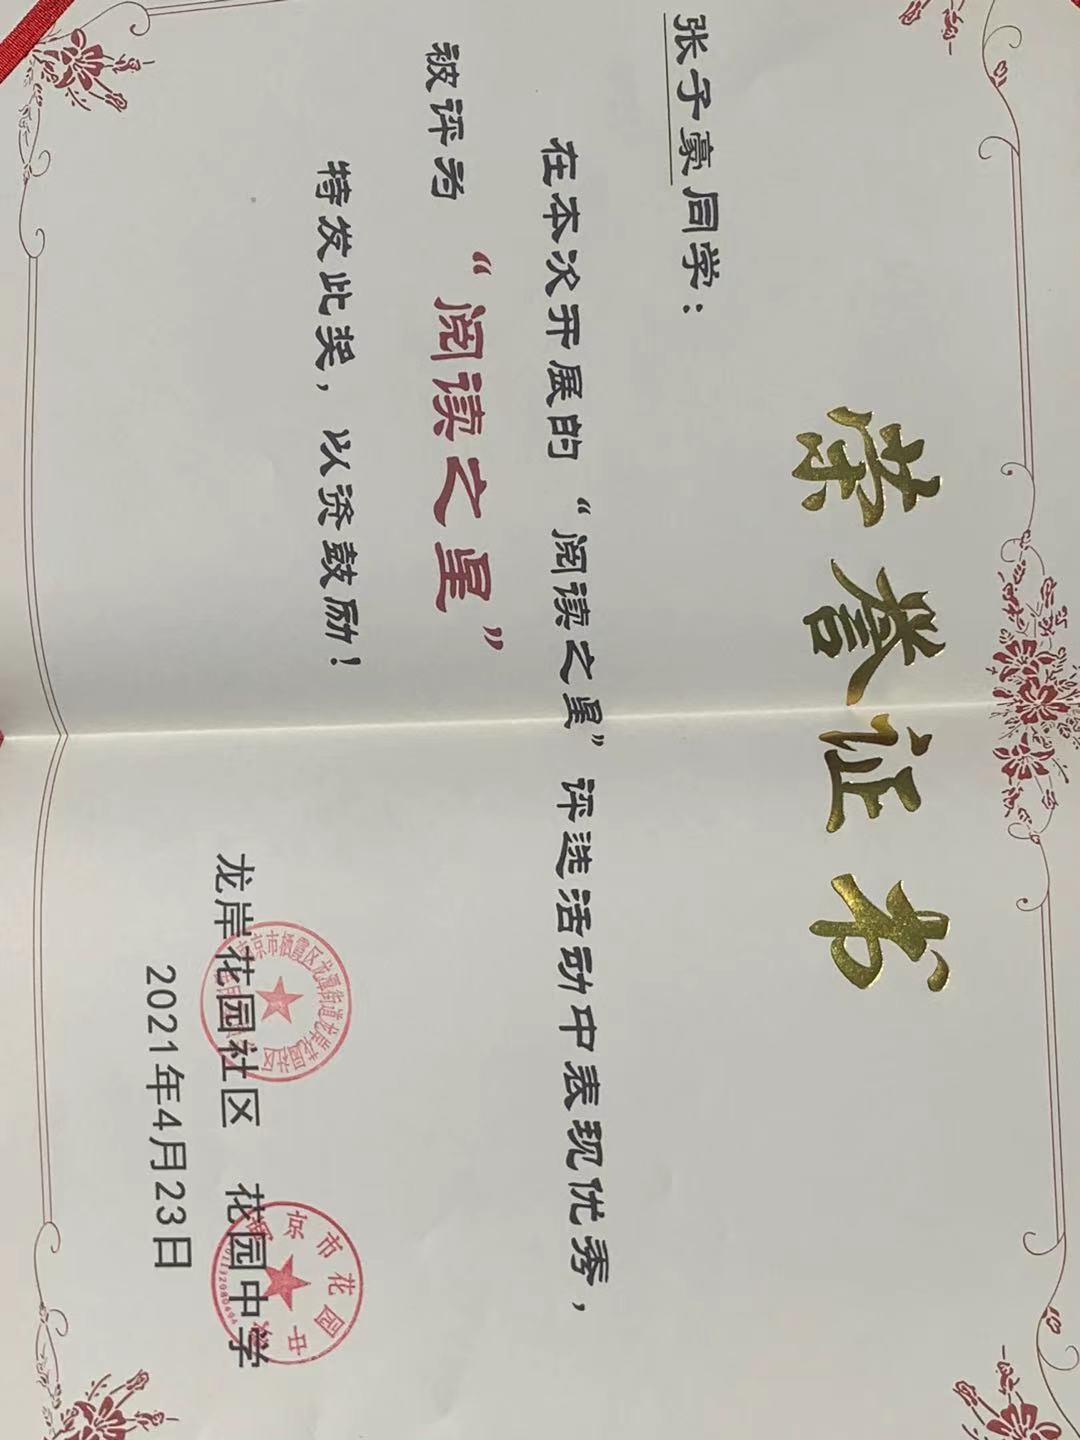 荣誉证书
张子豪同学：
在本次开展的“阅读之星”评选活动中表现优秀，
被评为“阅读之星”
特发此奖，以资鼓励！
龙岸花园社区 花园中学
2021年4月23日
京市栖霞区龙潭街道龙岸花园社区
京市花园中